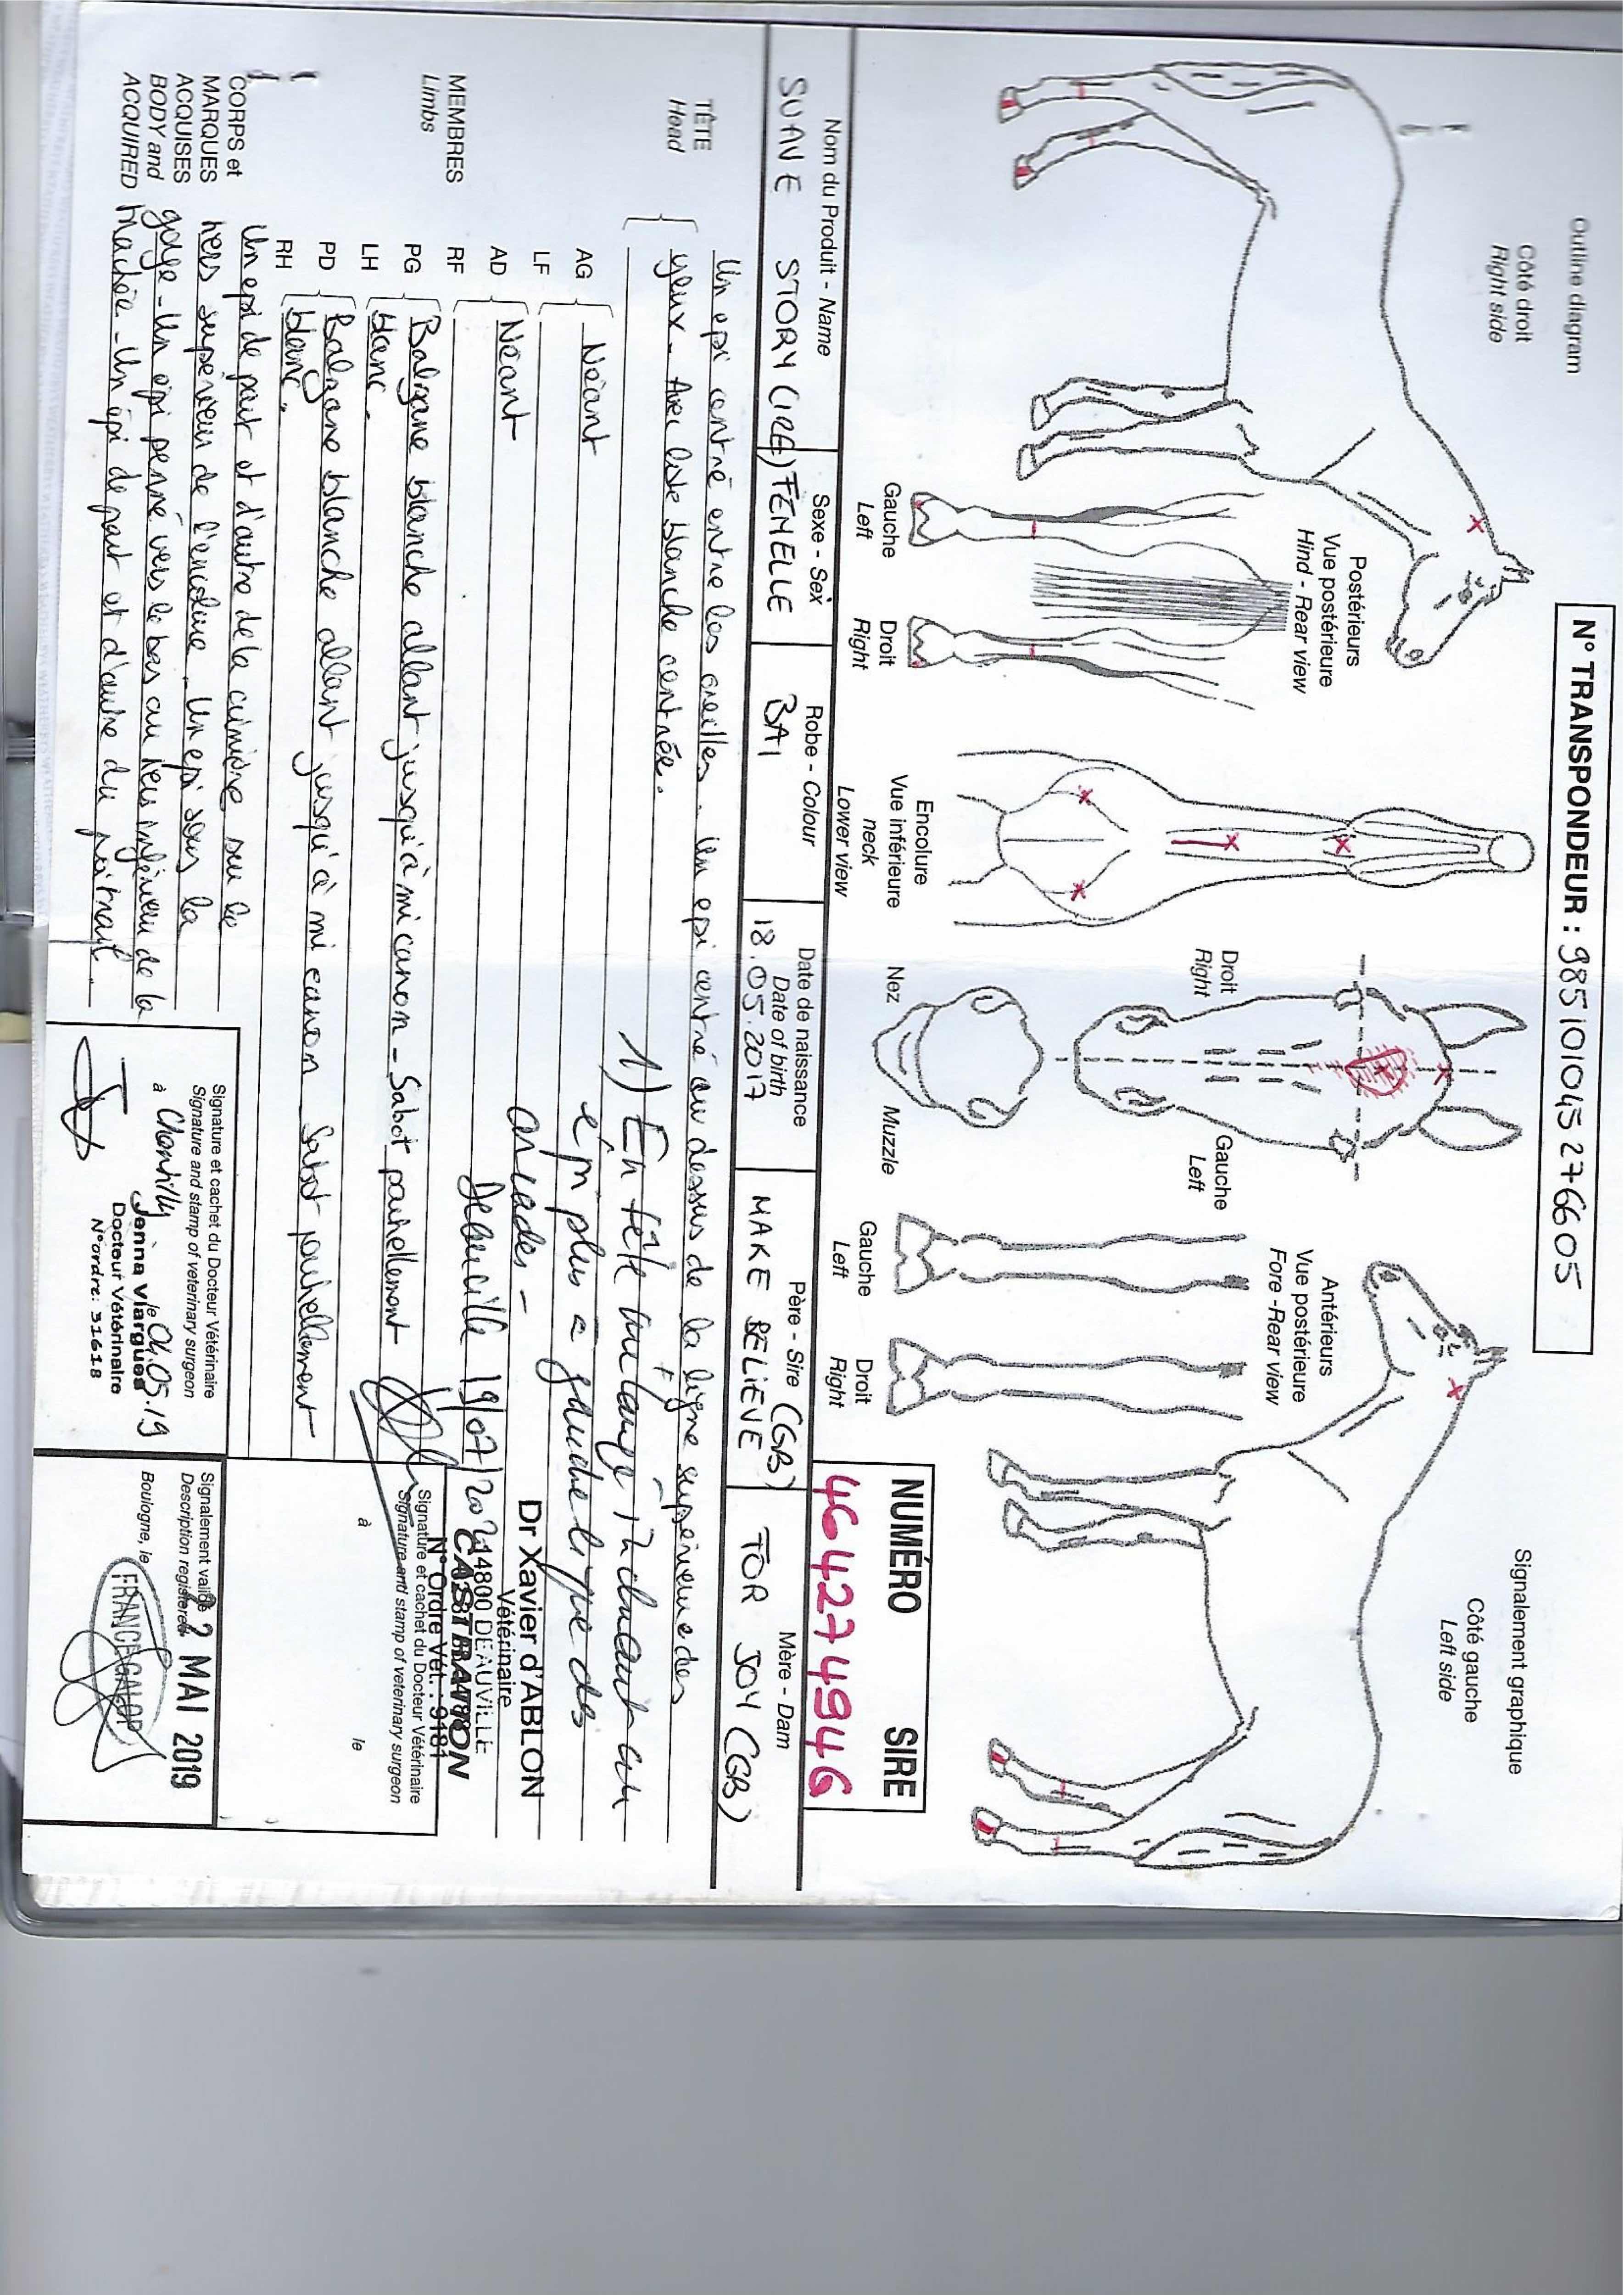 Outline diagram
Côté droit
Right side
N° TRANSPONDEUR : 985101045276605
Signalement graphique
Côté gauche
Left side
Postérieurs
Vue postérieure
Hind - Rear view
Gauche
Left
Droit
Right
Encolure
Vue inférieure
neck
Lower view
Droit
Right
Gauche
Left
Nez
Muzzle
Antérieurs
Vue postérieure
Fore -Rear view
Gauche
Left
Droit
Right
NUMÉRO SIRE
46427494G
Nom du Produit - Name
SUAVE STORY (IRE)
Sexe - Sex
FEMELLE
Robe - Colour
BAI
Date de naissance
Date of birth
18.05.2017
Père - Sire
MAKE BELIEVE (GB)
Mère - Dam
FOR JOY (GB)
TÊTE
Head
Un epi centré entre les oreilles. Un epi centré au dessus de la ligne supérieure des
yeux. Avec liste blanche centrée.
1) En tête mélangé incluant un
épi plus à gauche ligne des
arcades -
Deauville 19/07/20
MEMBRES
Limbs
AG
LF
Néant
AD
RF
Néant
PG
LH
Balzane blanche allant jusqu'à mi canon - Sabot partiellement
blanc.
PD
RH
Balzane blanche allant jusqu'à mi canon Sabot partiellement
blanc.
CORPS et
MARQUES
ACQUISES
BODY and
ACQUIRED
Un epi de part et d'autre de la crinière sur le
tiers supérieur de l'encolure. Un epi sous la
gorge - Un epi penné vers le bas au tiers inférieur de la
trachée - Un epi de part et d'autre du poitrail.
Dr Xavier d'ABLON
Vétérinaire
14800 DEAUVILLE
CASTRATION
N° Ordre Vét. : 9181
Signature et cachet du Docteur Vétérinaire
Signature and stamp of veterinary surgeon
à le
Signature et cachet du Docteur Vétérinaire
Signature and stamp of veterinary surgeon
à Chantilly le 04.05.19
Jenna Viargues
Docteur Vétérinaire
N°ordre: 31618
Signalement validé
Description registered
Boulogne, le
2 MAI 2019
FRANCE GALOP